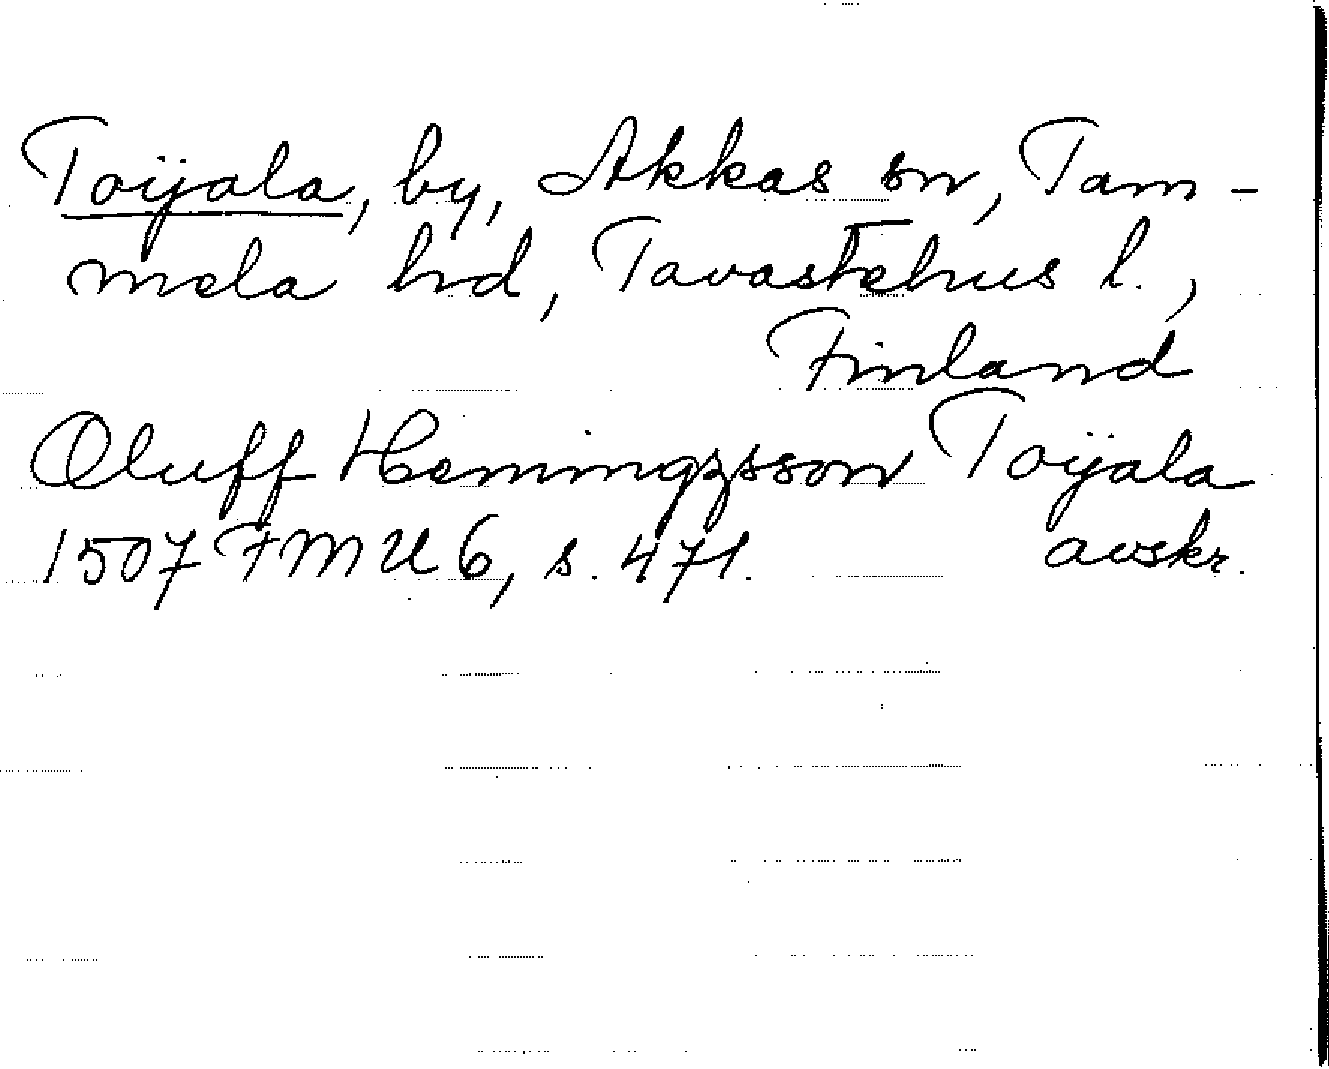 Toijala, by, Akkas sn, Tam-
mela hd, Tavastehus l.,
Finland
Oluff Hemingzsson Toijala
1507 FMU 6, s. 471. avskr.